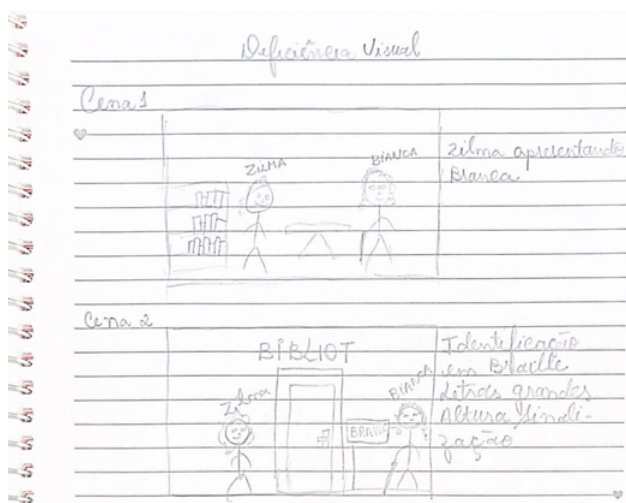 Deficiência Visual
Cena 1
ZILMA
BIANCA
Zilma apresentando
Bianca
Cena 2
BIBLIOT
Zilma
BIANCA
BRAILLE
Identificação
em Braille
Letras grandes
Altura/Sinali-
zação